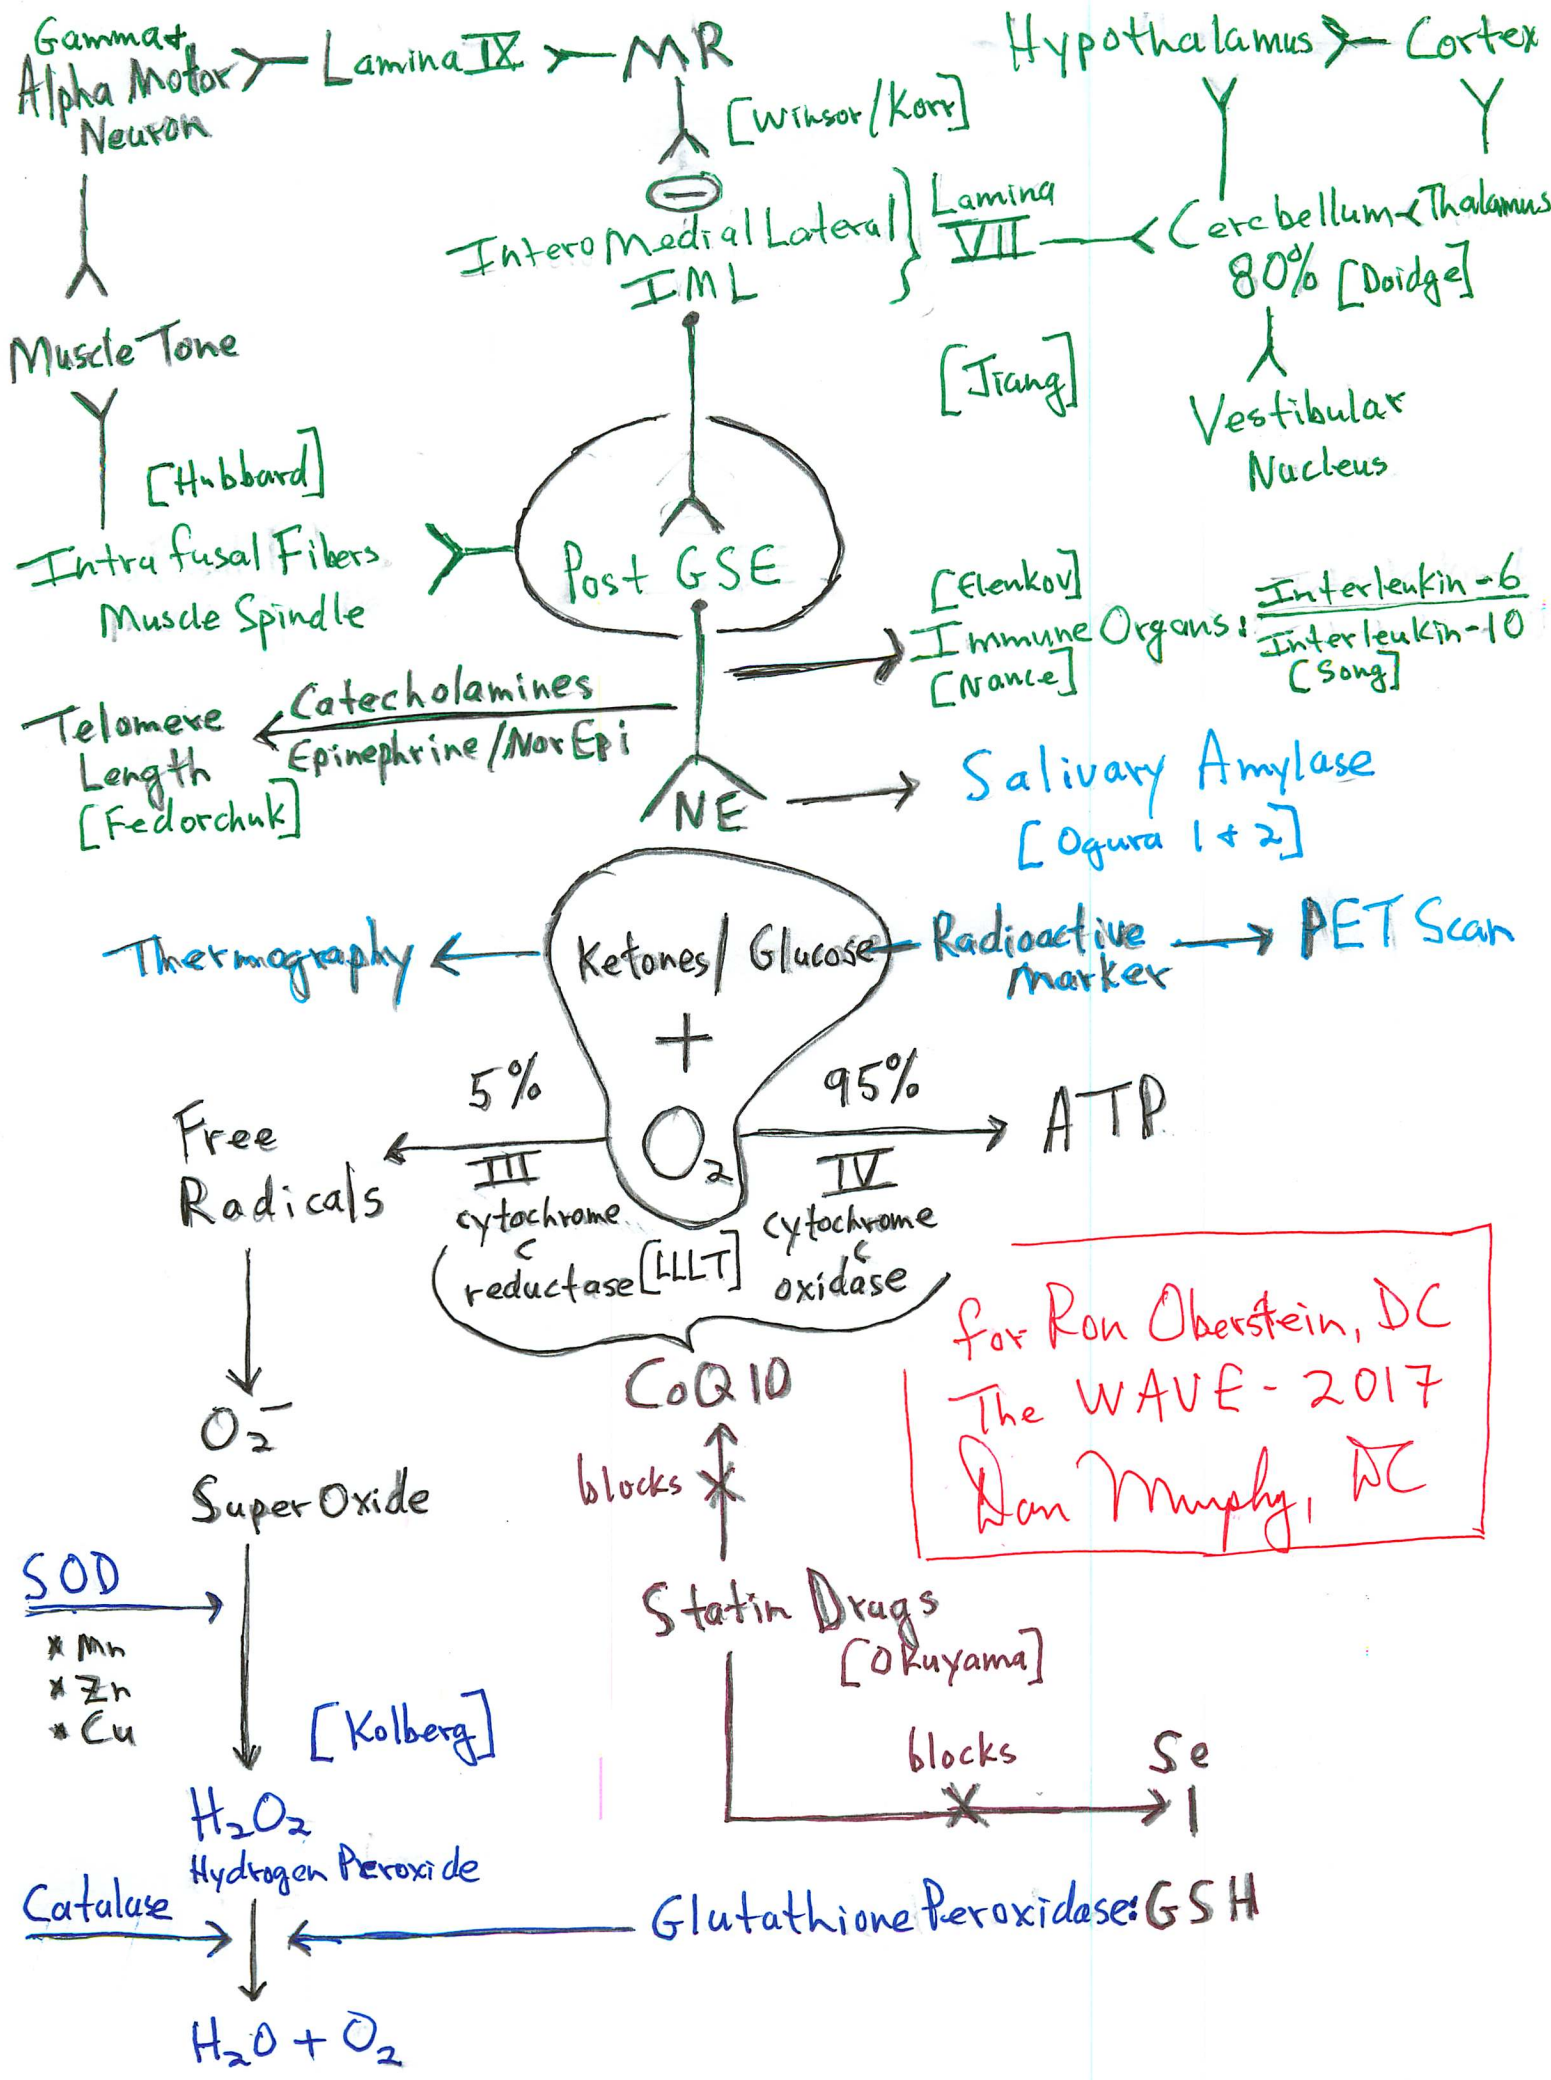 Gamma +
Alpha Motor
Neuron
Lamina IX
MR
Hypothalamus
Cortex
[Winsor/Korr]
−
InteroMedialLateral
IML
Lamina
VII
Cerebellum
Thalamus
80% [Doidge]
Muscle Tone
[Jiang]
Vestibular
Nucleus
[Hubbard]
Intrafusal Fibers
Muscle Spindle
Post GSE
[Elenkov]
Immune Organs:
[Nance]
Interleukin-6
Interleukin-10
[Song]
Telomere
Length
[Fedorchuk]
Catecholamines
Epinephrine/NorEpi
NE
Salivary Amylase
[Ogura 1 + 2]
Thermography
Ketones/Glucose
Radioactive
Marker
PET Scan
+
O2
5%
III
cytochrome
c
reductase
[LLLT]
95%
IV
cytochrome
c
oxidase
ATP
Free
Radicals
CoQ10
for Ron Oberstein, DC
The WAVE - 2017
Dan Murphy, DC
O2−
SuperOxide
blocks
Statin Drugs
[Okuyama]
SOD
* Mn
* Zn
* Cu
[Kolberg]
blocks
Se
H2O2
Hydrogen Peroxide
Catalase
Glutathione Peroxidase: GSH
H2O + O2